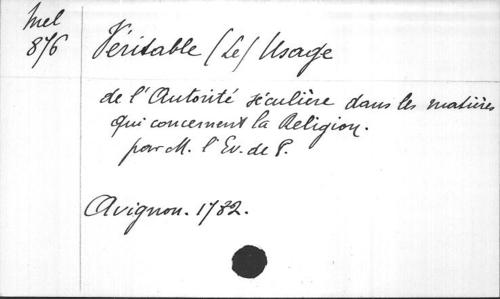 Mel
876
Véritable (Le) Usage
de l'Autorité séculière dans les matières
qui concernent la Religion.
par M. l'Ev. de P.
Avignon. 1782.